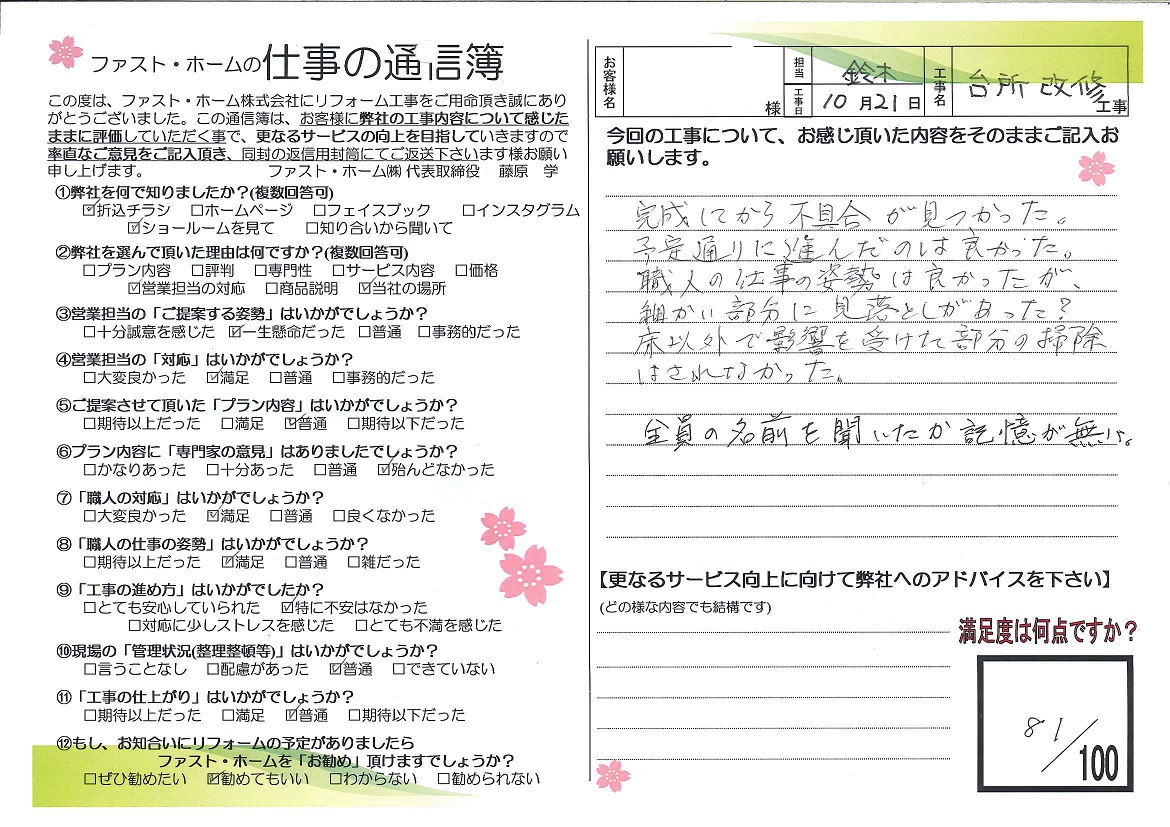 ファスト・ホームの仕事の通信簿
この度は、ファスト・ホーム株式会社にリフォーム工事をご用命頂き誠にあり
がとうございました。この通信簿は、お客様に弊社の工事内容について感じた
ままに評価していただく事で、更なるサービスの向上を目指していきますので
率直なご意見をご記入頂き、同封の返信用封筒にてご返送下さいます様お願い
申し上げます。 ファスト・ホーム㈱ 代表取締役 藤原 学
①弊社を何で知りましたか?(複数回答可)
☑折込チラシ □ホームページ □フェイスブック □インスタグラム
☑ショールームを見て □知り合いから聞いて
②弊社を選んで頂いた理由は何ですか?(複数回答可)
□プラン内容 □評判 □専門性 □サービス内容 □価格
☑営業担当の対応 □商品説明 ☑当社の場所
③営業担当の「ご提案する姿勢」はいかがでしょうか?
□十分誠意を感じた ☑一生懸命だった □普通 □事務的だった
④営業担当の「対応」はいかがでしょうか?
□大変良かった ☑満足 □普通 □事務的だった
⑤ご提案させて頂いた「プラン内容」はいかがでしょうか?
□期待以上だった □満足 ☑普通 □期待以下だった
⑥プラン内容に「専門家の意見」はありましたでしょうか?
□かなりあった □十分あった □普通 ☑殆んどなかった
⑦「職人の対応」はいかがでしょうか?
□大変良かった ☑満足 □普通 □良くなかった
⑧「職人の仕事の姿勢」はいかがでしょうか?
□期待以上だった ☑満足 □普通 □雑だった
⑨「工事の進め方」はいかがでしたか?
□とても安心していられた ☑特に不安はなかった
□対応に少しストレスを感じた □とても不満を感じた
⑩現場の「管理状況(整理整頓等)」はいかがでしょうか?
□言うことなし □配慮があった ☑普通 □できていない
⑪「工事の仕上がり」はいかがでしょうか?
□期待以上だった □満足 ☑普通 □期待以下だった
⑫もし、お知合いにリフォームの予定がありましたら
ファスト・ホームを「お勧め」頂けますでしょうか?
□ぜひ勧めたい ☑勧めてもいい □わからない □勧められない
お客様名 様 担当 鈴木 工事日 10月21日 工事名 台所改修工事
今回の工事について、お感じ頂いた内容をそのままご記入お
願いします。
完成してから不具合が見つかった。
予定通りに進んだのは良かった。
職人の仕事の姿勢は良かったが、
細かい部分に見落としがあった?
床以外で影響を受けた部分の掃除
はされなかった。
全員の名前を聞いたか記憶が無い。
【更なるサービス向上に向けて弊社へのアドバイスを下さい】
(どの様な内容でも結構です)
満足度は何点ですか?
81/100